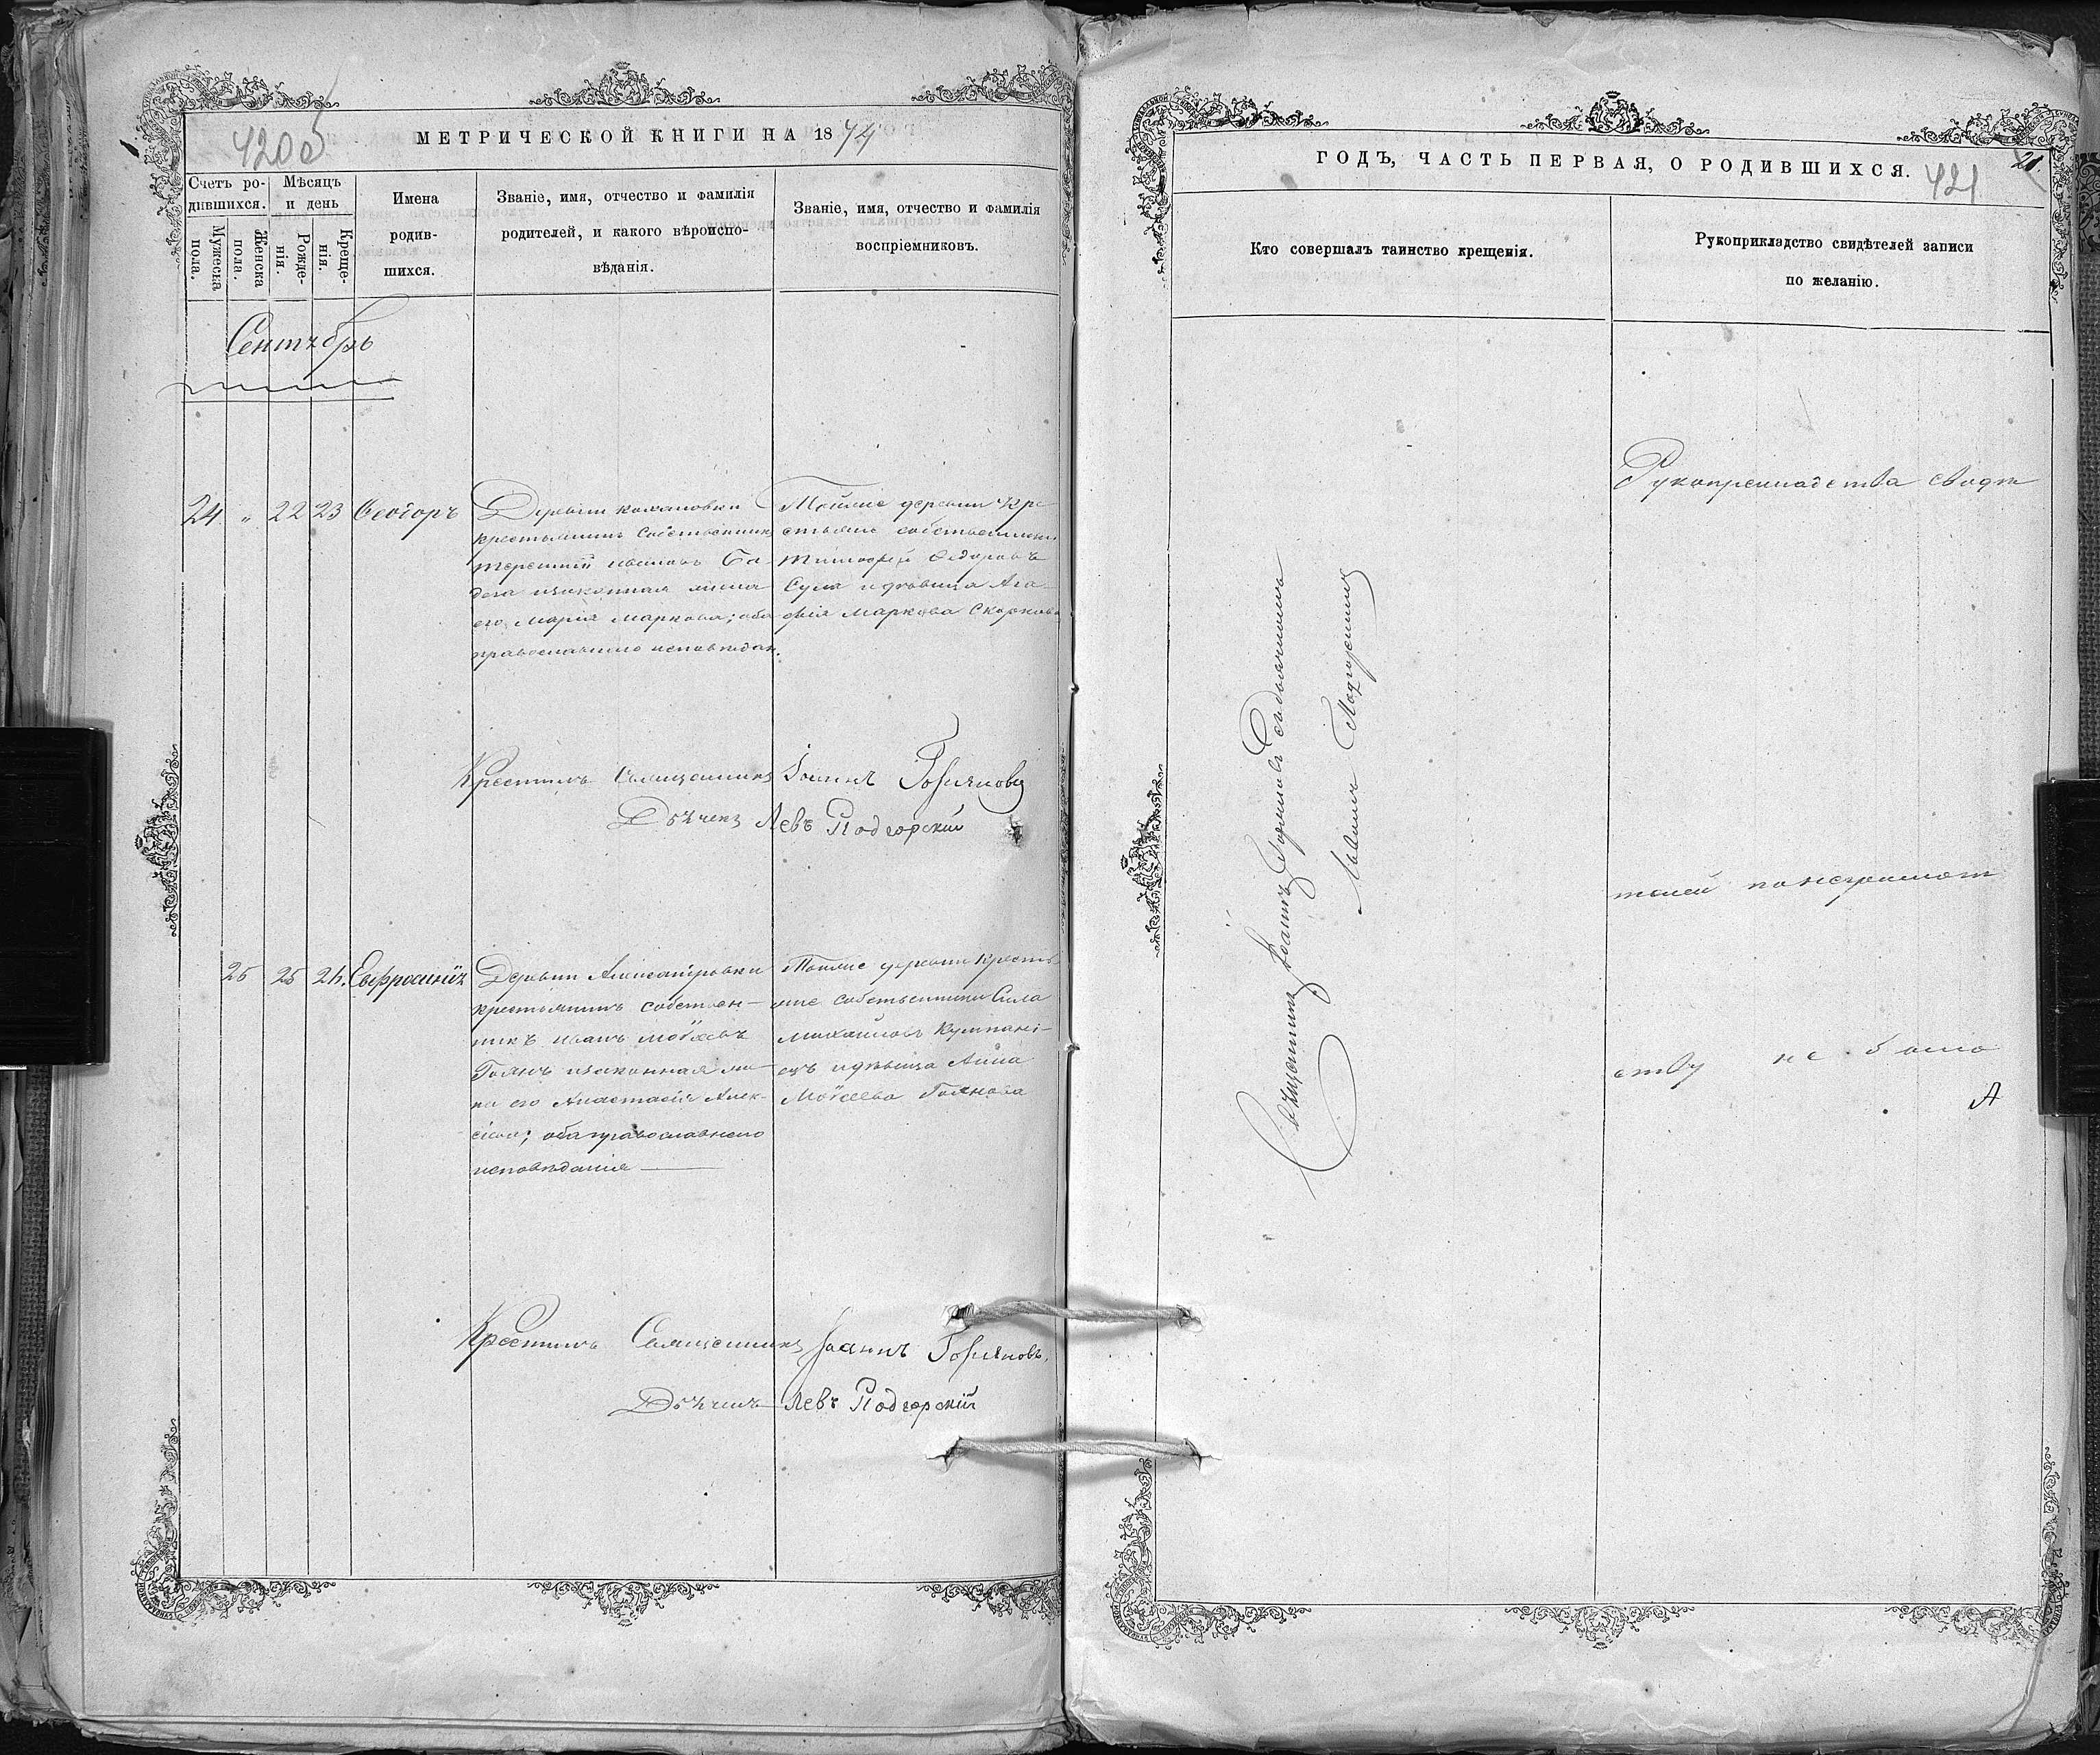 420об
МЕТРИЧЕСКОЙ КНИГИ НА 1874
Счетъ ро-
дившихся.
Мѣсяцъ
и день
Мужеска
пола.
Женска
пола.
Рожде-
нія.
Креще-
нія.
Имена
родив-
шихся.
Званіе, имя, отчество и фамилія
родителей, и какого вѣроиспо-
вѣданія.
Званіе, имя, отчество и фамилія
воспріемниковъ.
Сентябрь
24 " 22 23 Ѳеодоръ
крестьянинъ собственникъ
Терентій Ивановъ
законная жена
его Марія Маркова; оба
православнаго исповѣдан.
Тойже деревни кре
стьяне собственники
Тимофей Ѳедоровъ
и дѣвица Ага-
фія Маркова
Крестилъ Священникъ Іоаннъ
Дьячекъ Левъ Подгорскій
25 25 26. Евфросинія
Деревни Александровки
крестьянинъ собствен-
никъ Иванъ Моѵсѣевъ
Гоянъ и законная же-
на его Анастасія Алек-
сіева; оба православнаго
исповѣданія
Тойже деревни кресть-
яне собственники Сила
Михайловъ
и дѣвица Анна
Моѵсеева Гоянова
Крестилъ Священникъ Іоаннъ
Дьячекъ Левъ Подгорскій
ГОДЪ, ЧАСТЬ ПЕРВАЯ, О РОДИВШИХСЯ.
421
21.
Кто совершалъ таинство крещенія.
Рукоприкладство свидѣтелей записи
по желанію.
Священникъ Іоаннъ
Рукоприкладства свидѣ
телей по неграмот
ству не было